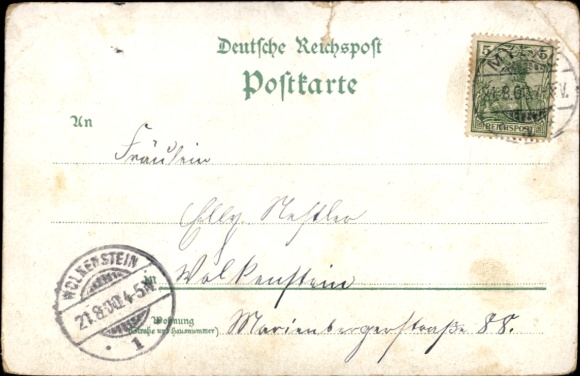 Deutsche Reichspost
Postkarte
5 5
REICHSPOST
21.8.00
An
Fräulein
Elly Nestler
in Wolkenstein
Wohnung
(Straße und Hausnummer) Marienbergerstraße 88.
WOLKENSTEIN
21.8.00.4-5N.
1